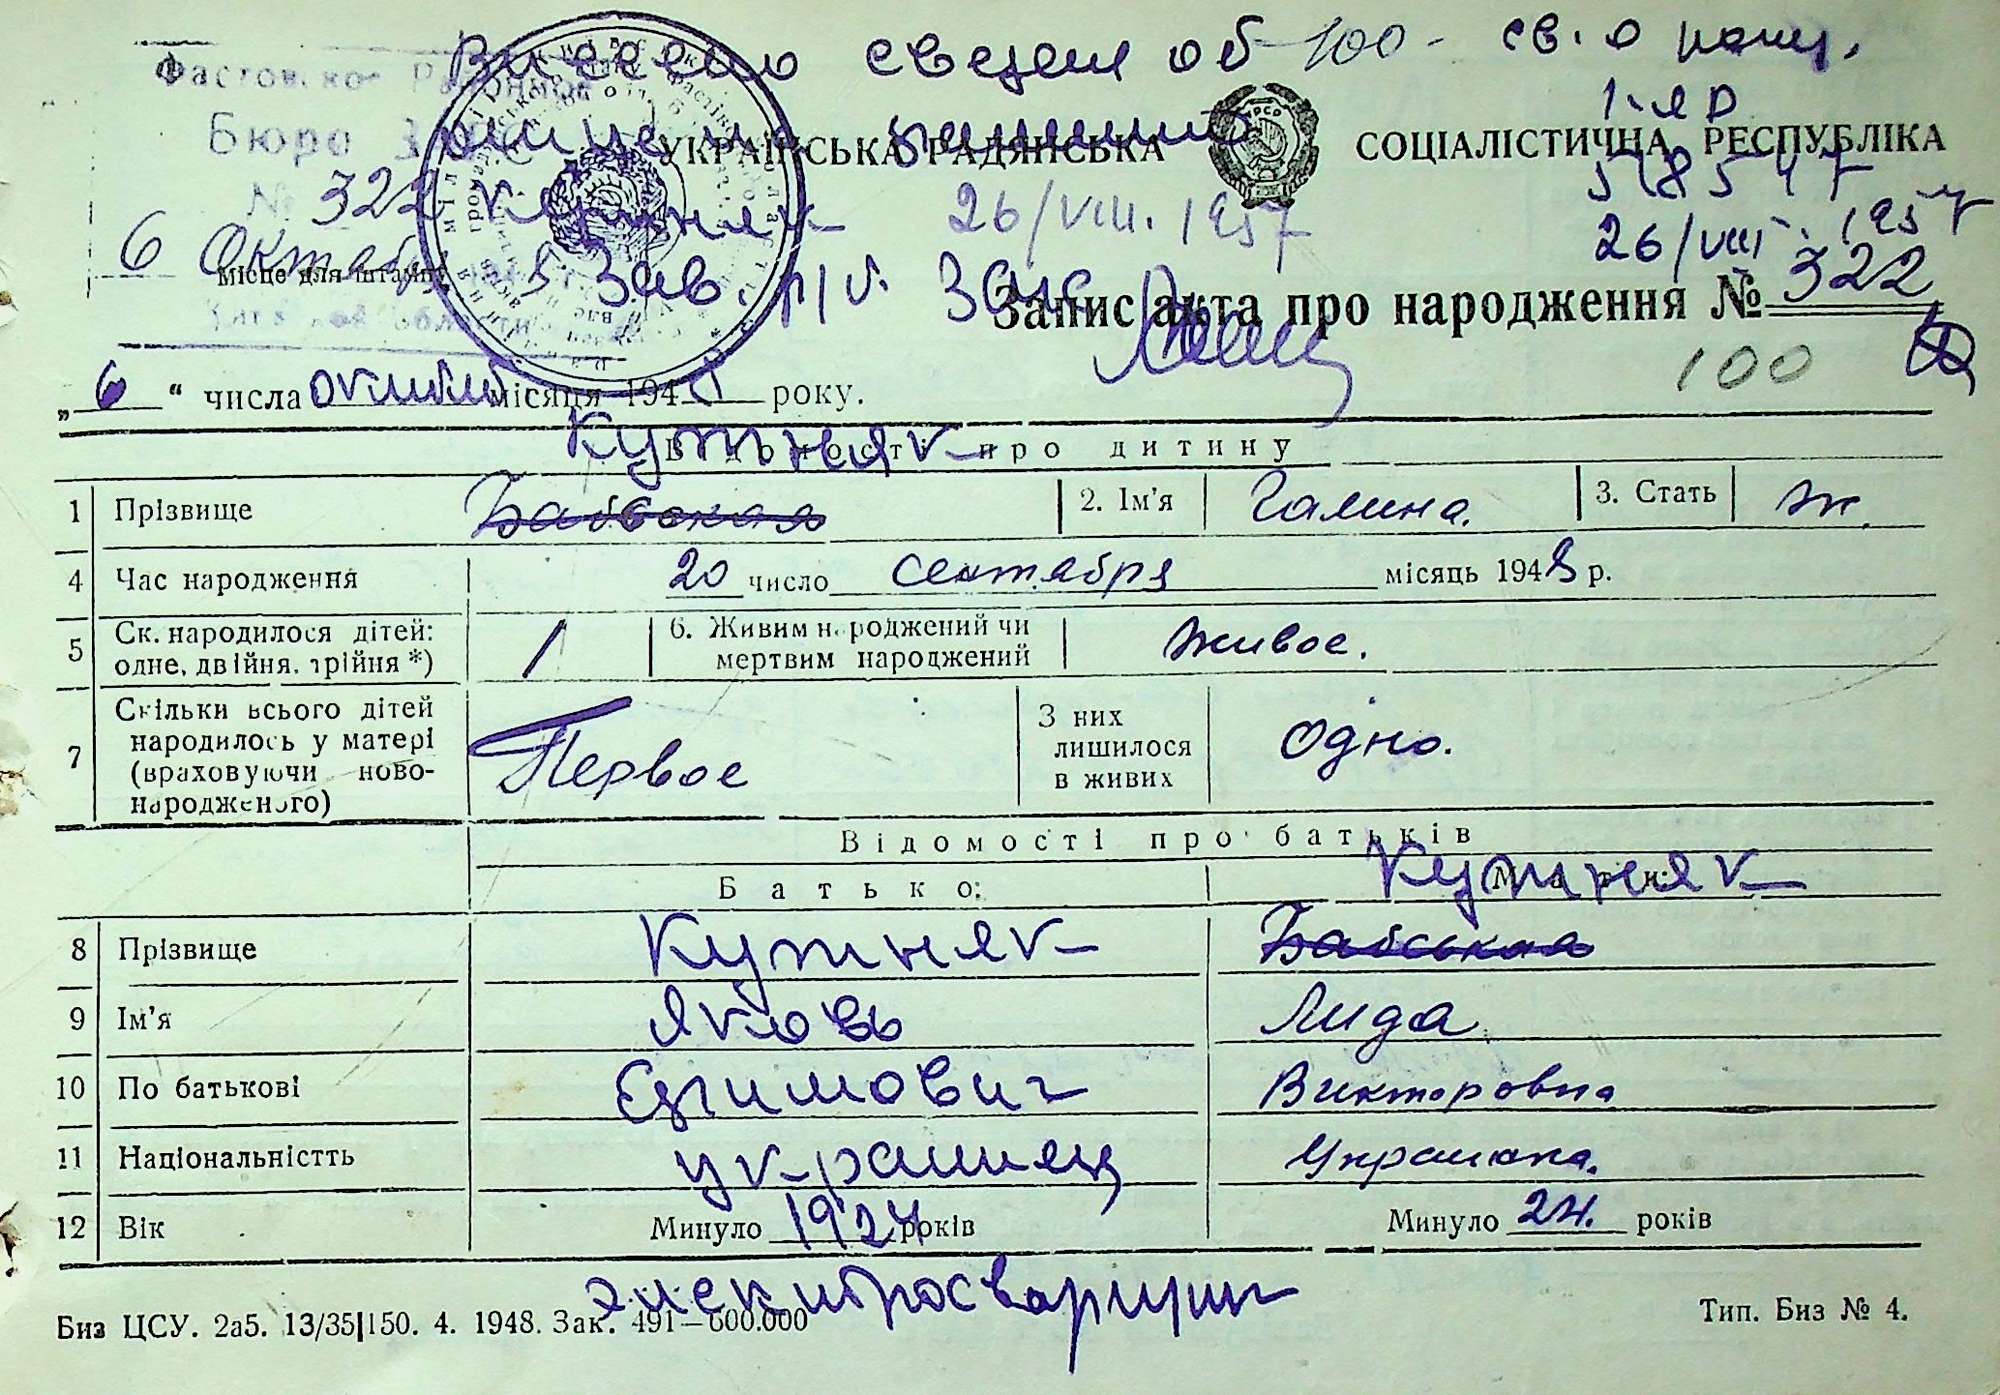 Внесено сведения об 100 - св. о рожд.
Фастовско Районное
Бюро ЗАГС
УКРАЇНСЬКА РАДЯНСЬКА СОЦІАЛІСТИЧНА РЕСПУБЛІКА
1-ЯР
518547
№ 322 Кутняк 26/VIII. 1957
26/VIII. 1957
6 Октября
місце для штампу
Зав. р/б. Загс
Запис акта про народження № 322
100
„ 6 “ числа октября місяця 1948 року.
Кутняк
Відомості про дитину
1 Прізвище Бабская 2. Ім'я Галина. 3. Стать ж.
4 Час народження 20 число сентября місяць 1948 р.
5 Ск. народилося дітей: одне, двійня, трійня *) 1 6. Живим народжений чи мертвим народжений живое.
7 Скільки всього дітей народилось у матері (враховуючи новонародженого) Первое З них лишилося в живих одно.
Відомості про батьків
Кутняк
Батько: Мати:
8 Прізвище Кутняк Бабськая
9 Ім'я Яковь Лида
10 По батькові Ефимович Викторовна
11 Національністть украинец Украинка.
12 Вік Минуло 1924 років Минуло 24. років
электросварщик
Биз ЦСУ. 2а5. 13/35|150. 4. 1948. Зак. 491—600.000 Тип. Биз № 4.